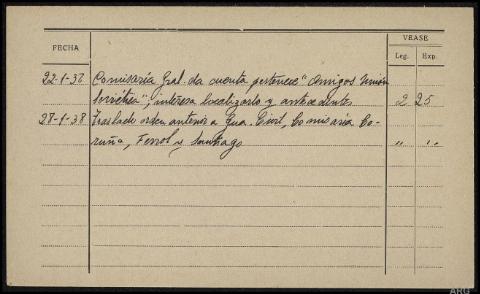 FECHA
VEASE
Leg. Exp.
22-1-38 Comisaría Gral. da cuenta pertenece "Amigos Unión
Soviética", interesa localizarlo y antecedentes 2 25
28-1-38 Traslado orden anterior a Gua. Civil, Comisaría Co-
ruña, Ferrol y Santiago " "
ARG